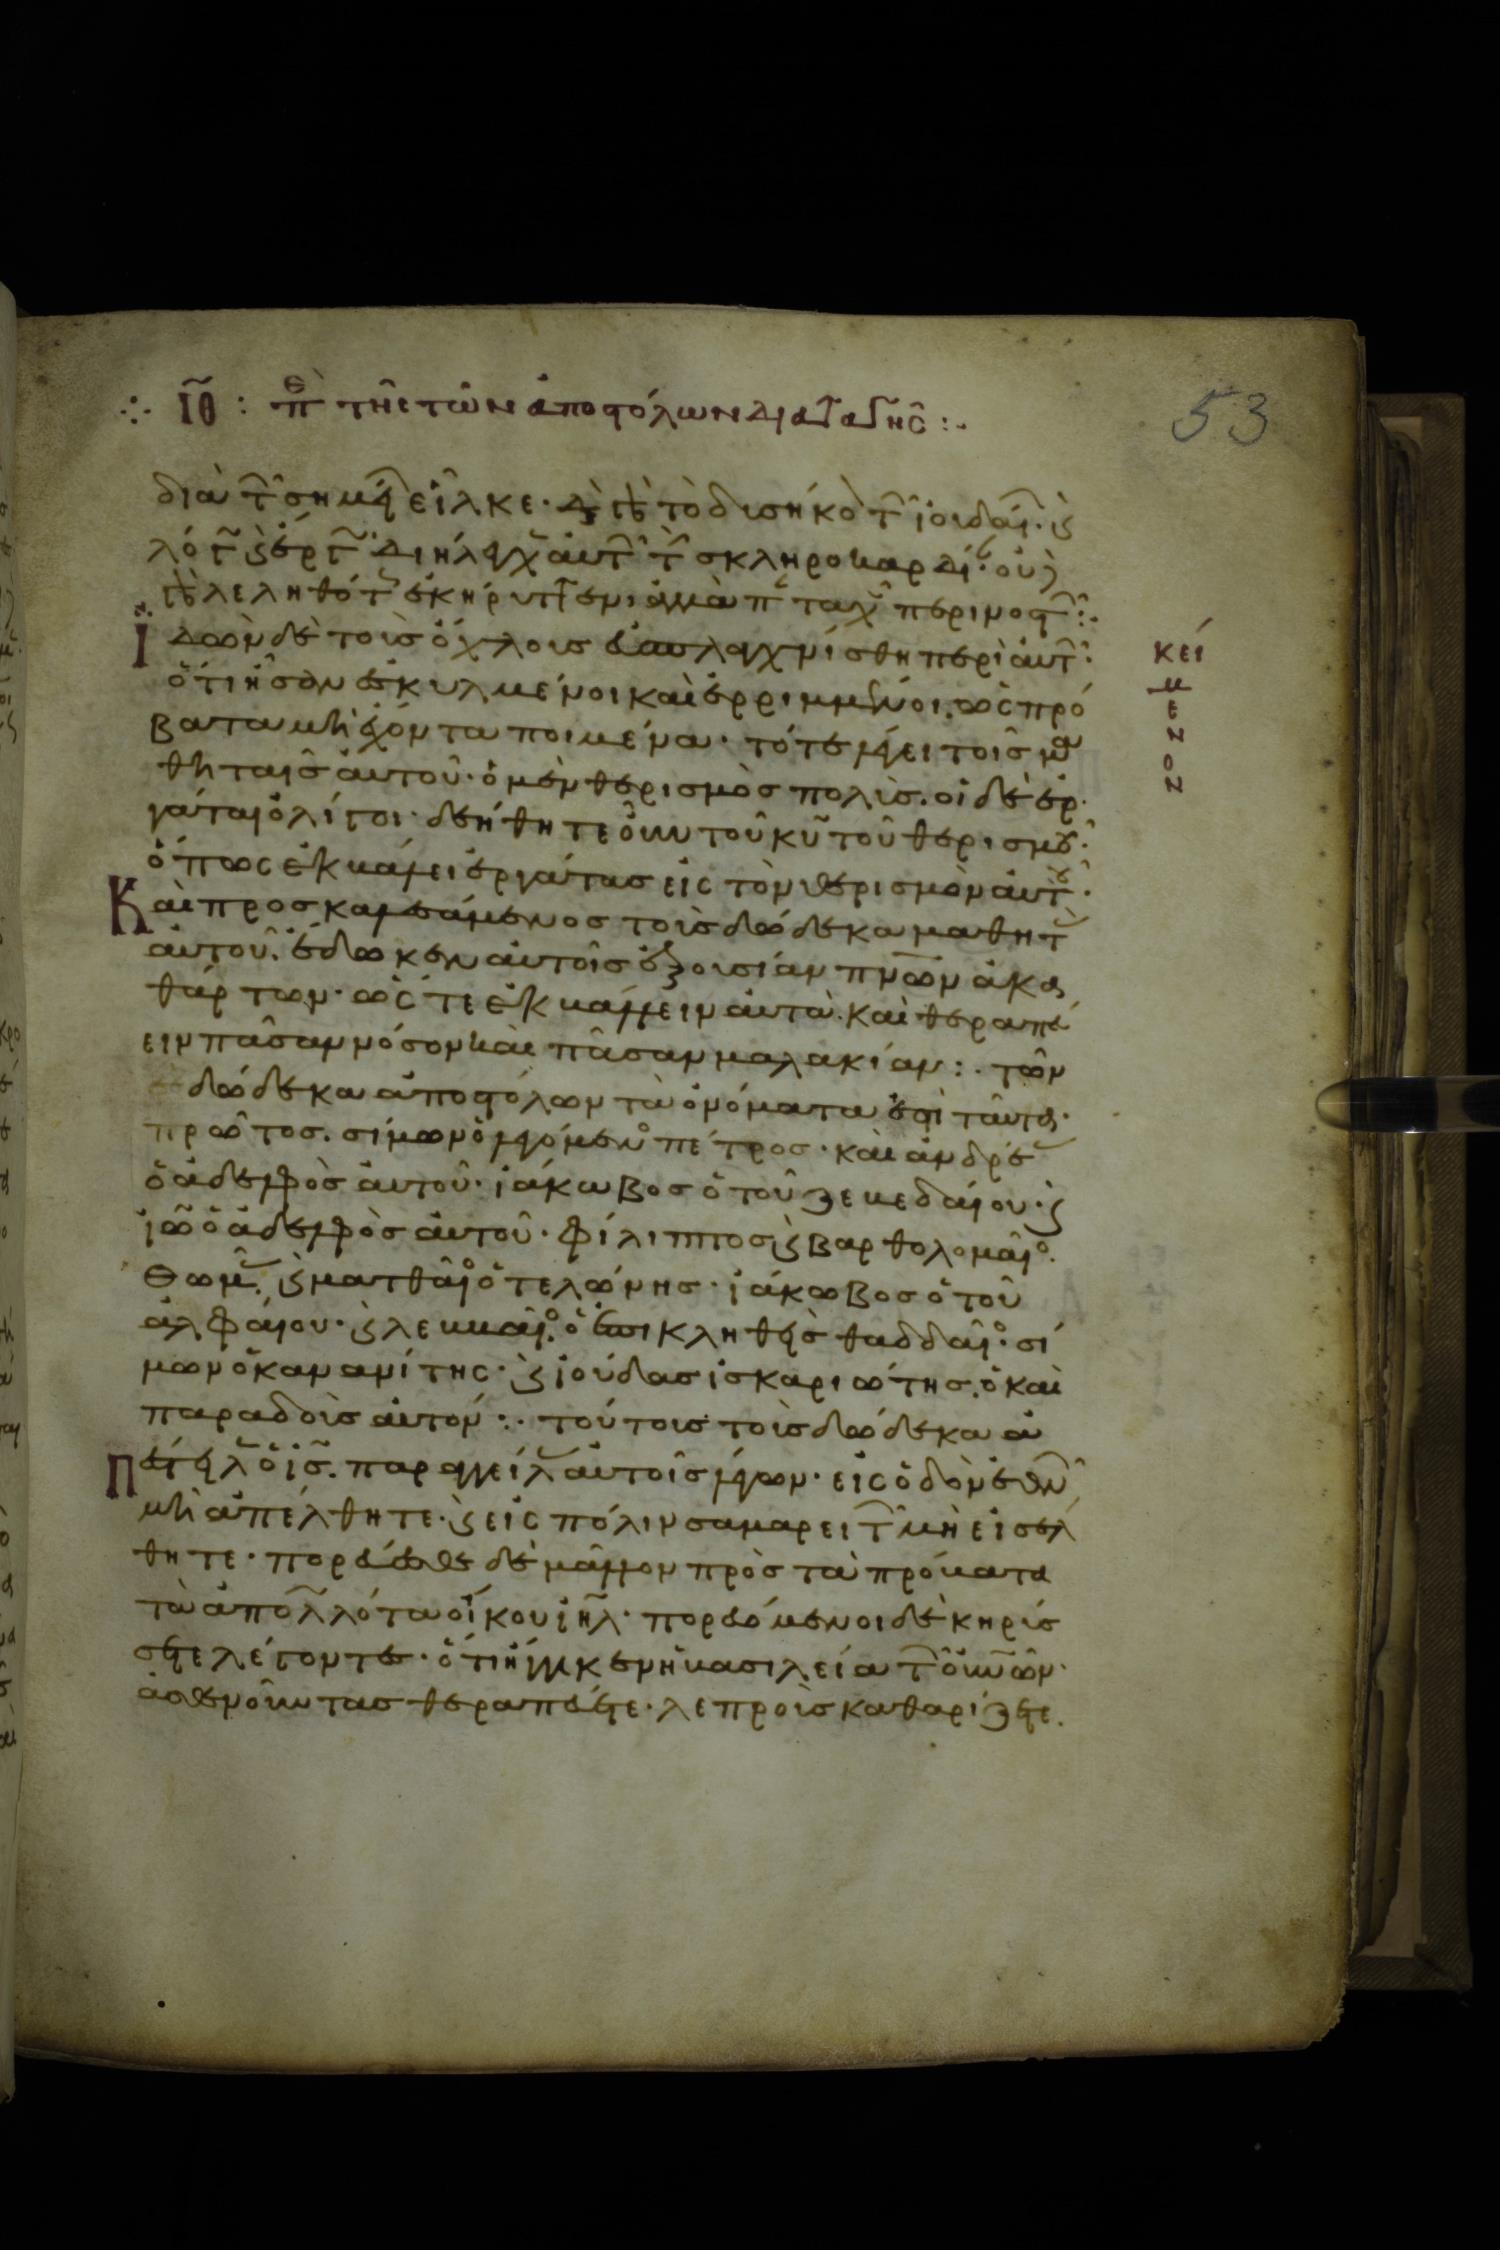 ΙΘ : πε τῆς τῶν ἀποστόλων διαταγῆς :.
53
λεληθότ ἐκήρυττεν ἀλλὰ
Ἰδὼν δὲ τοὺς ὄχλους ἐσπλαγχνίσθη περὶ αὐτ.
ὅτι ἦσαν ἐσκυλμένοι καὶ ἐρριμμένοι. ὡς πρό
βατα μὴ ἔχοντα ποιμένα. τότε λέγει τοῖς μα
θηταῖς αὐτοῦ. ὁ μὲν θερισμὸς πολὺς. οἱ δὲ ἐρ
γάται ὀλίγοι. δεήθητε οὖν τοῦ κυ τοῦ θερισμοῦ.
ὅπως ἐκβάλει ἐργάτας εἰς τὸν θερισμὸν αὐτοῦ.
Καὶ προσκαλεσάμενος τοὺς δώδεκα μαθητ
αὐτοῦ. ἔδωκεν αὐτοῖς ἐξουσίαν πνων ἀκα
θάρτων. ὥς τε ἐκβάλλειν αὐτὰ. καὶ θεραπεύ
ειν πᾶσαν νόσον καὶ πᾶσαν μαλακίαν :. τῶν
δώδεκα ἀποστόλων τὰ ὀνόματα εἰσὶ ταῦτα.
πρῶτος. σίμων ὁ λεγόμενο πέτρος. καὶ ἀνδρέ
ὁ ἀδελφὸς αὐτοῦ. ἰάκωβος ὁ τοῦ ζεβεδαίου. ϗ
ἰω ὁ ἀδελφὸς αὐτοῦ. φίλιππος ϗ βαρθολομαῖο.
Θωμ. ϗ ματθαῖο ὁ τελώνης. ἰάκωβος ὁ τοῦ
ἀλφαίου. ϗ λεββαῖο. ὁ ἐπικληθεὶς θαδδαῖο. σί
μων ὁ κανανίτης. ϗ ἰούδας ἰσκαριώτης. ὁ καὶ
παραδοὺς αὐτόν :. τούτους τοὺς δώδεκα ἀ
Πέστειλ ὁ ις. παραγγείλ αὐτοῖς λέγων. εἰς ὁδὸν ἐθν
μὴ ἀπέλθητε. ϗ εἰς πόλιν σαμαρειτ μὴ εἰσέλ
θητε. πορεύεσθε δὲ μᾶλλον πρὸς τὰ πρόβατα
τὰ ἀπολλότα οἴκου ιηλ. πορευόμενοι δὲ κηρύσ
σετε λέγοντες. ὅτι ἤγγικεν ἡ βασιλεία τ οὐνων.
ἀσθενοῦντας θεραπεύετε. λεπροὺς καθαρίζετε.
κεί
μ
ε
ν
ο
ν